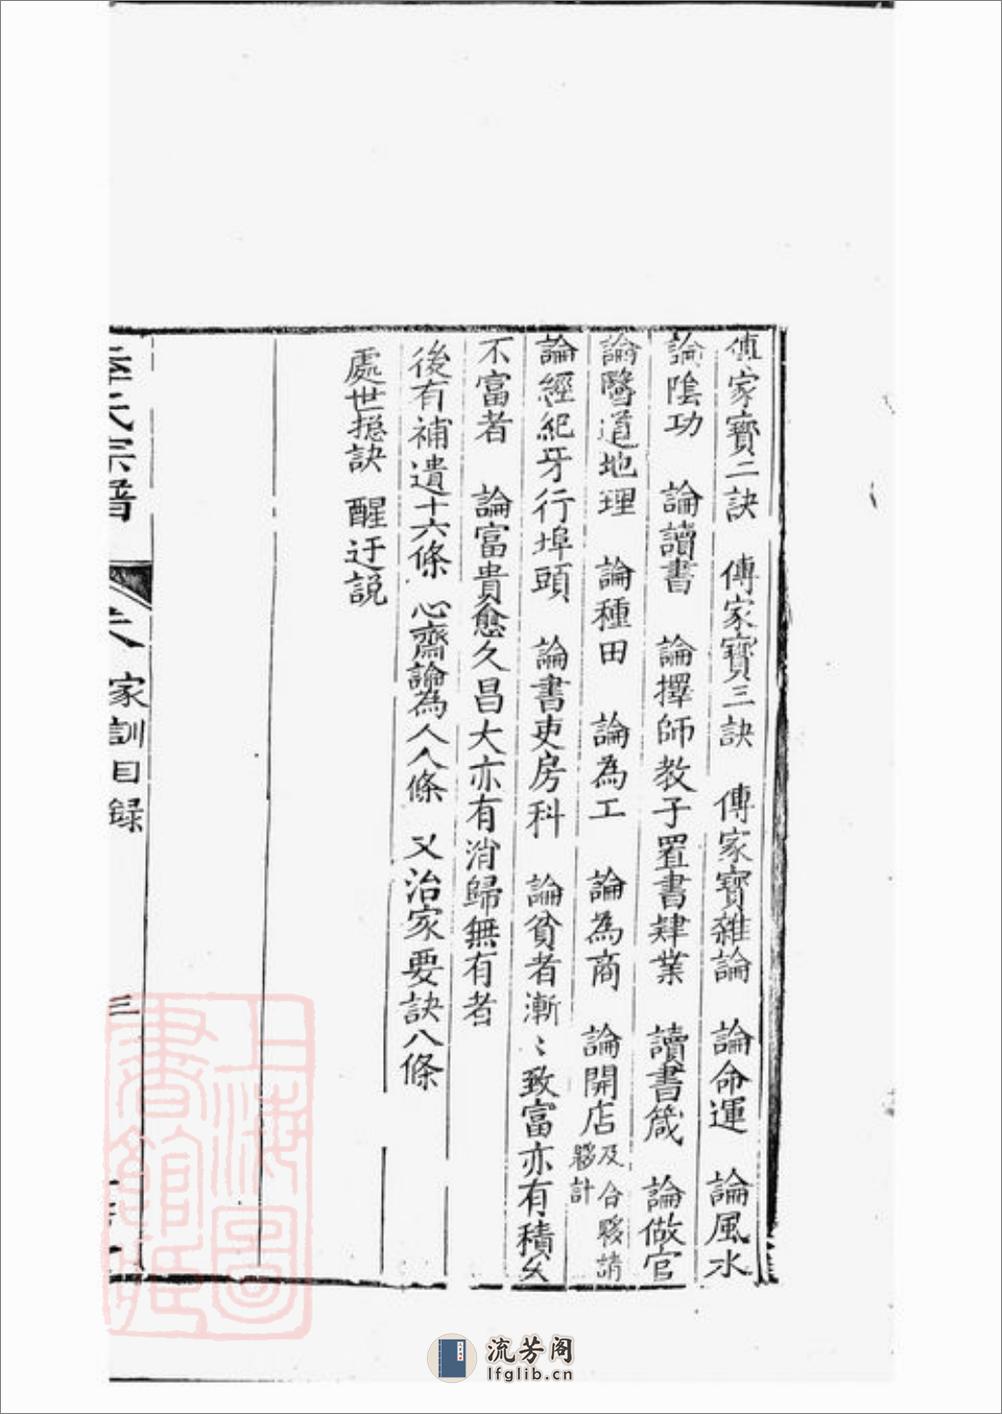 傳家寶二訣　傳家寶三訣　傳家寶雜論　論命運　論風水
論陰功　論讀書　論擇師教子置書肄業　讀書箴　論做官
論醫道地理　論種田　論為工　論為商　論開店及合夥請夥計
論經紀牙行埠頭　論書吏房科　論貧者漸〻致富亦有積久
不富者　論富貴愈久昌大亦有消歸無有者
後有補遺十六條　心齋論為人八條　又治家要訣八條
處世摠訣　醒迂説
氏宗譜
家訓目録
三
上海圖書館藏
流芳阁
lfglib.cn